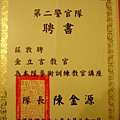 第二警官隊
聘書
茲敦聘
金立言教官
為本隊藝術訓練教官講座
隊長 陳金源